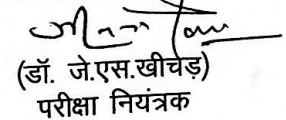 (डॉ. जे.एस.खीचड़)
परीक्षा नियंत्रक